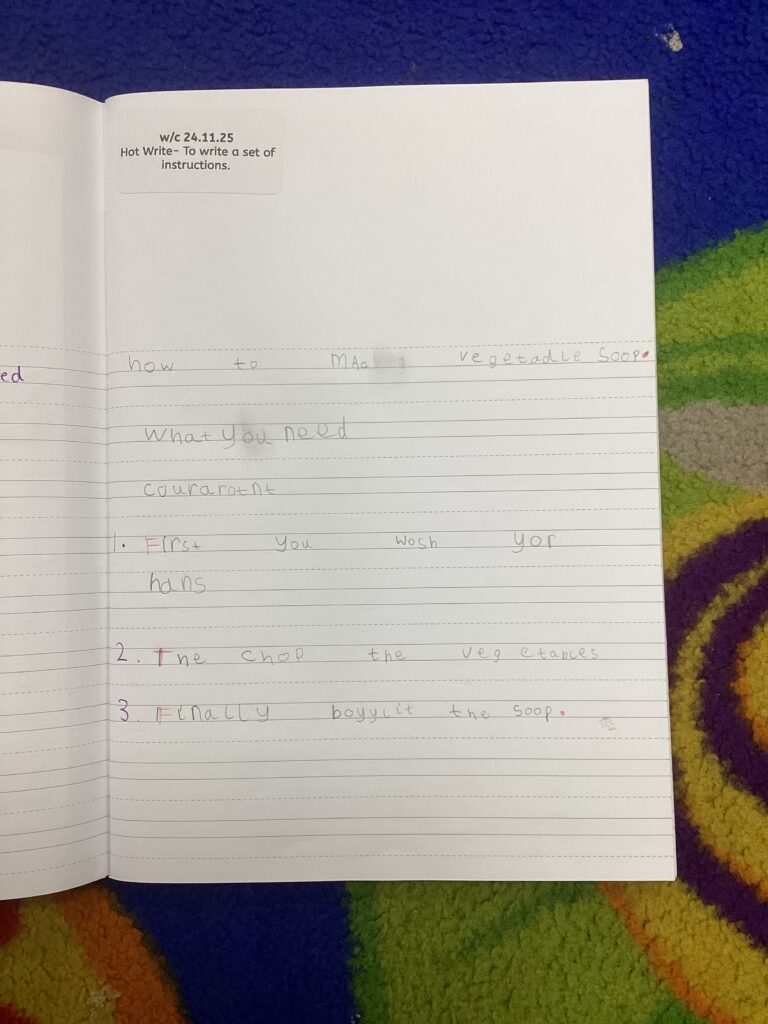 w/c 24.11.25
Hot Write- To write a set of
instructions.
ed
how to vegetadle Soop.
What you need
courarotnt
1. First you wosh yor
hans
2. The chop the vegetables
3. Finally boyylit the soop.